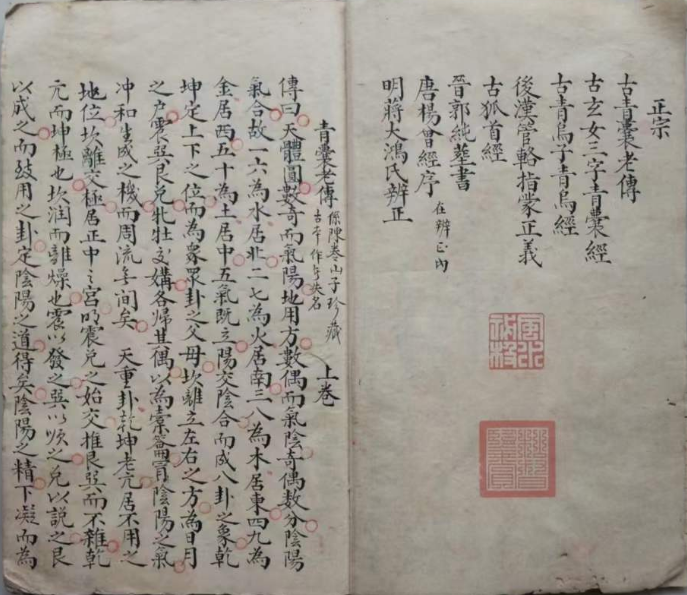 正宗
古青囊老傳
古玄女三字青囊經
古青烏子青烏經
後漢管輅指蒙正義
古狐首經
晉郭純墓書
唐楊曾經序 在辨正內
明蔣大鴻氏辨正
青囊老傳 係陳卷山子珍藏 古本作者失名 上卷
傳曰天體圓數奇而氣陽地用方數偶而氣陰奇偶数分陰陽
氣合故一六為水居北二七為火居南三八為木居東四九為
金居西五十為土居中五氣既立陽交陰合而成八卦之象乾
坤定上下之位而為眾卦之父母坎離立左右之方為日月
之户震巽艮兌牝牡交媾各歸其偶以為橐籥冐陰陽之氣
冲和生成之機而周流無间矣 天重卦乾坤老亢居不用之
地位坎離交極居正中之宮明震兌之始交推艮巽而不雜乾
元而坤極也坎润而離燥也震以發之巽以順之兌以説之艮
以成之而致用之卦定陰陽之道得矣陰陽之精下凝而為